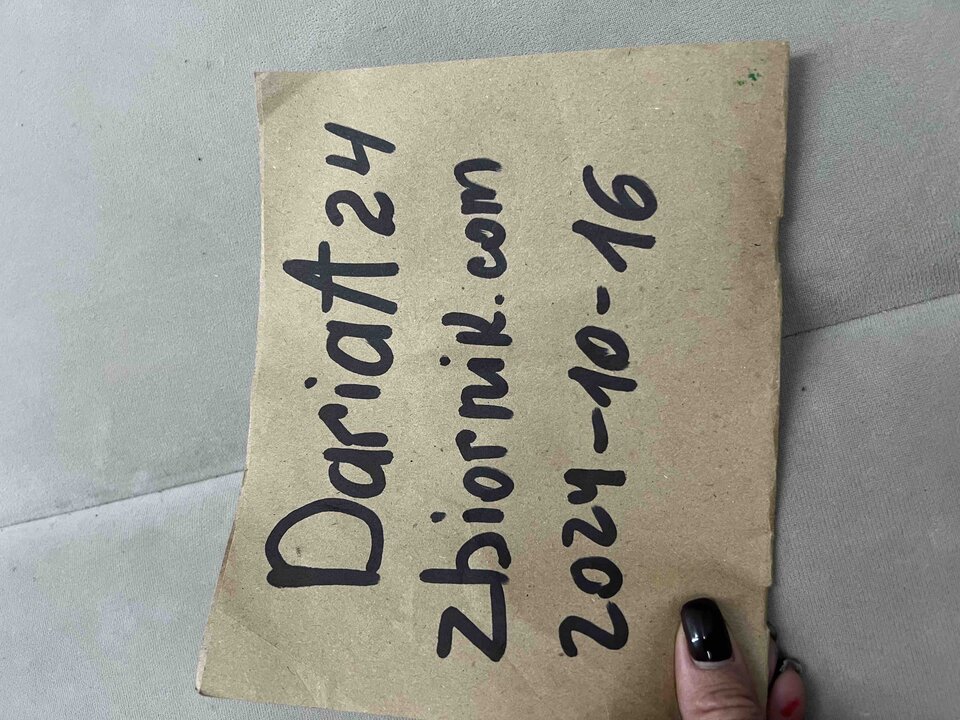 DariaA24
zbiornik.com
2024-10-16